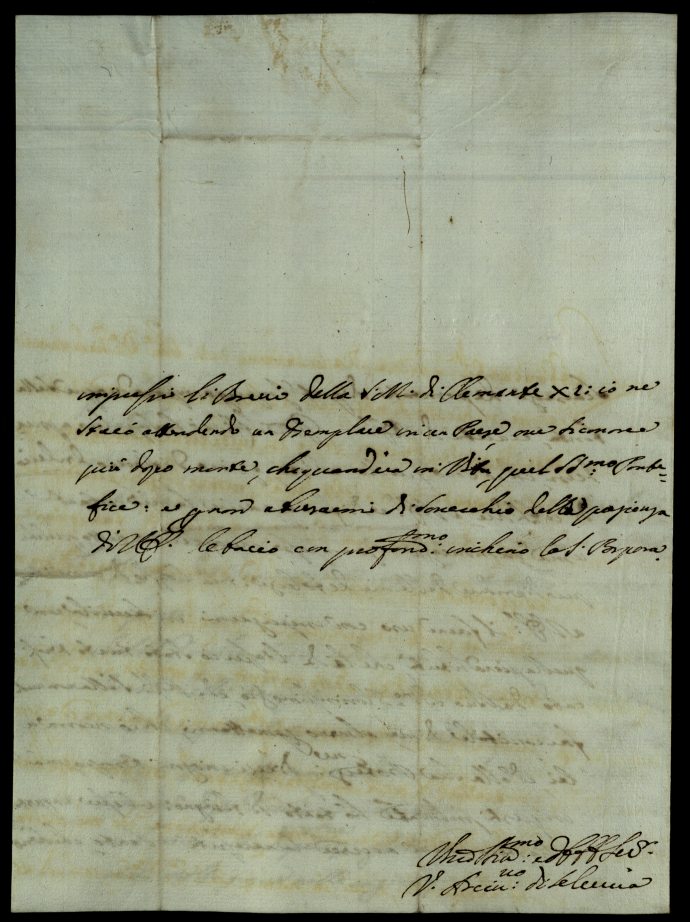 impressi li Brevi della S. M. di Clemente XI: io ne
starò attendendo un Esemplare in un Paese ove si onora
più dopo morte, che quand'era in Vita, quel S.mo Ponte-
fice: e p non abusarmi di soverchio della pazienza
di V. E. le bacio con profond.mo inchino la S. Porpora.
V. Arciv.vo di Seleucia